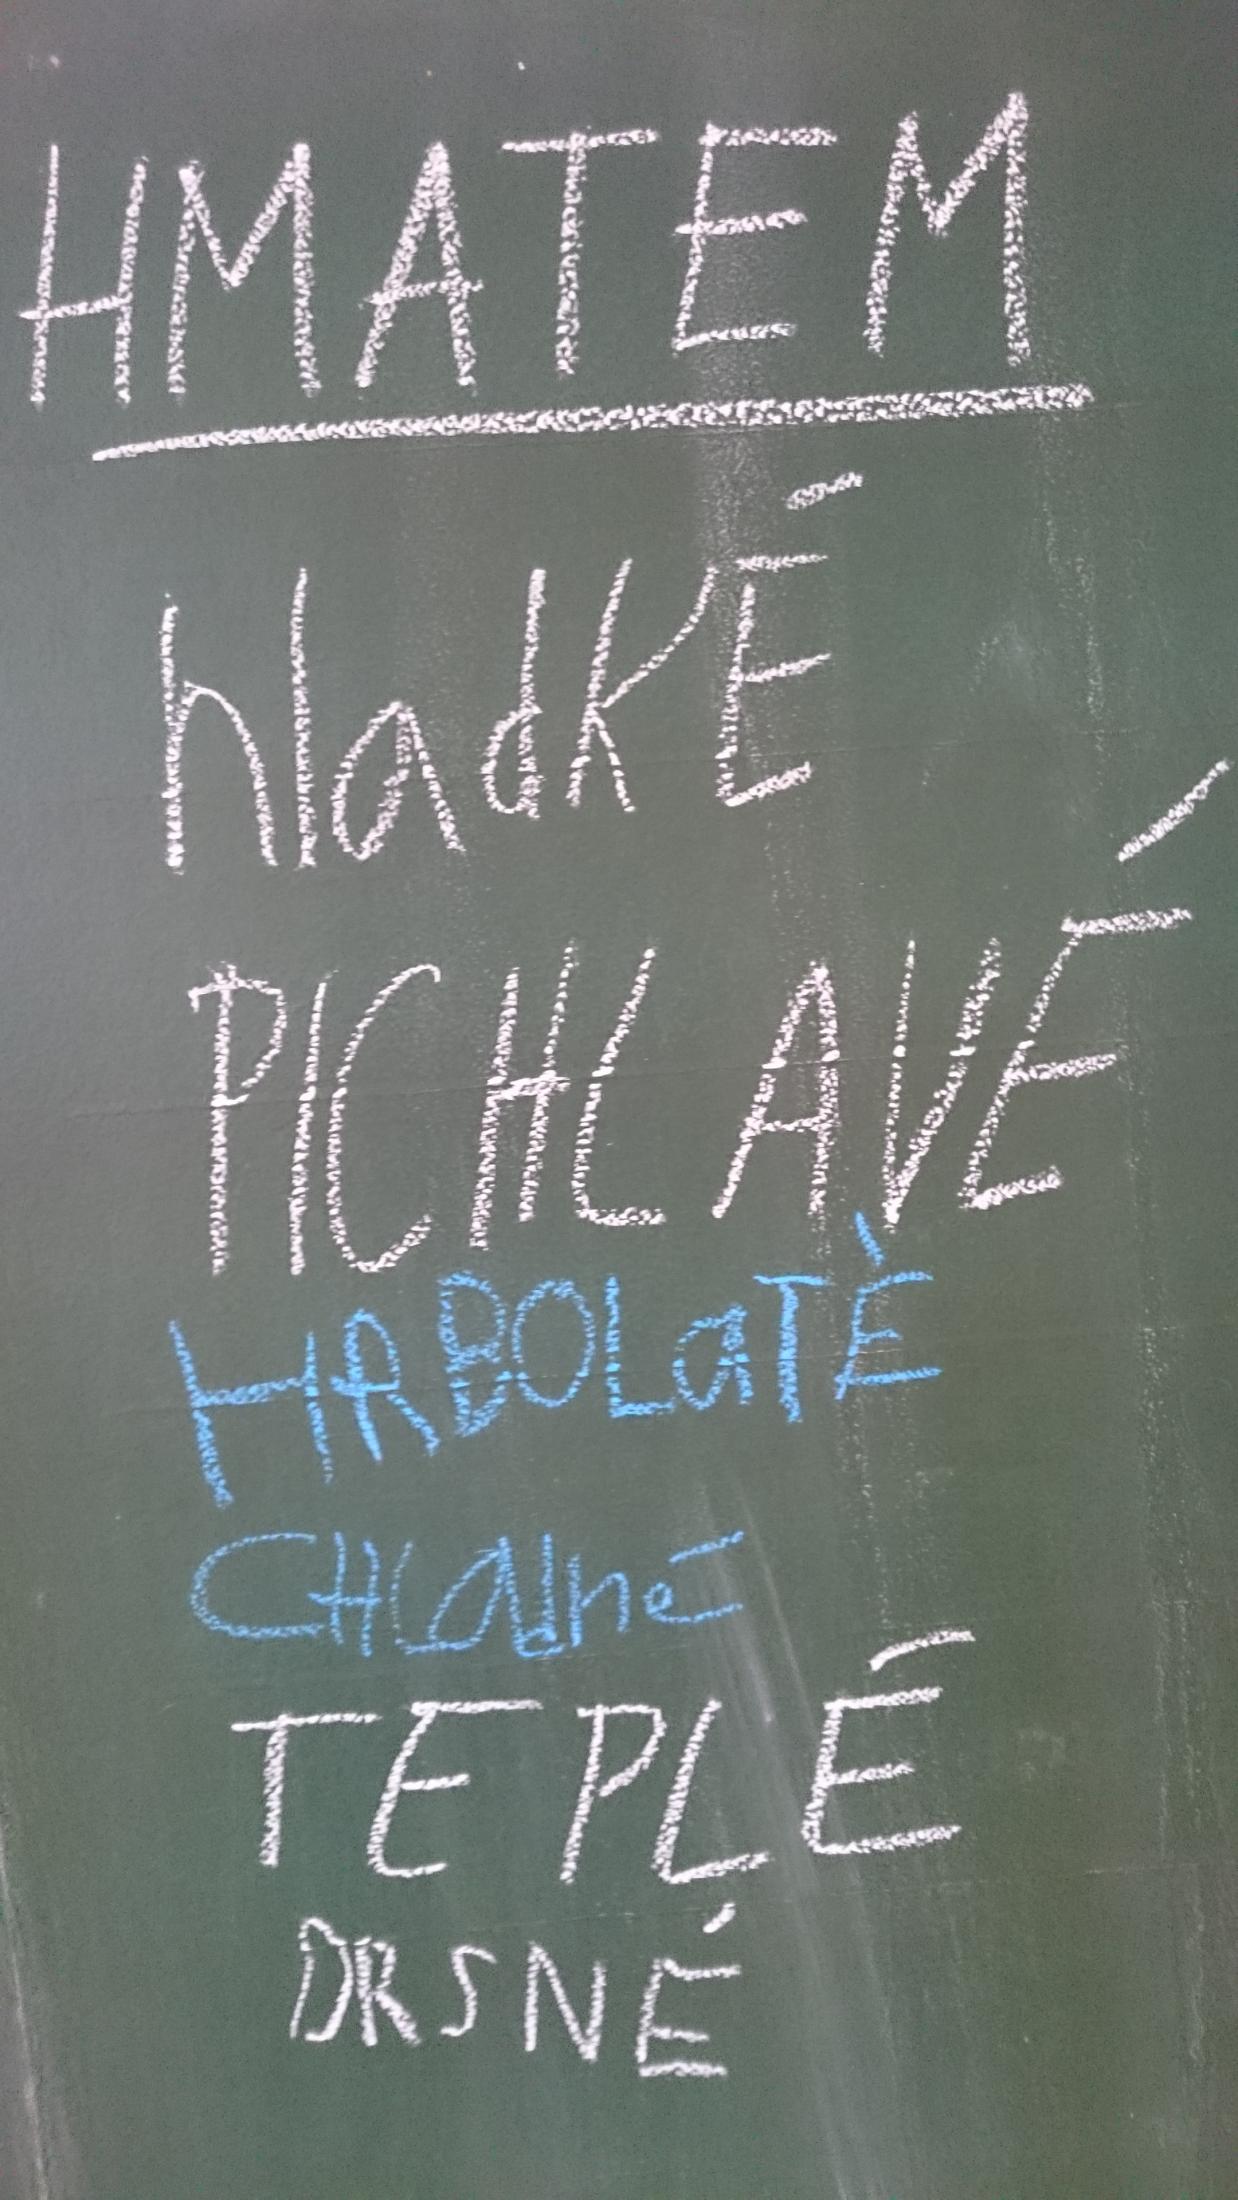 HMATEM
hladKÉ
PICHLAVÉ
HRBOLaTÈ
CHLadné
TEPLÉ
DRSNÉ